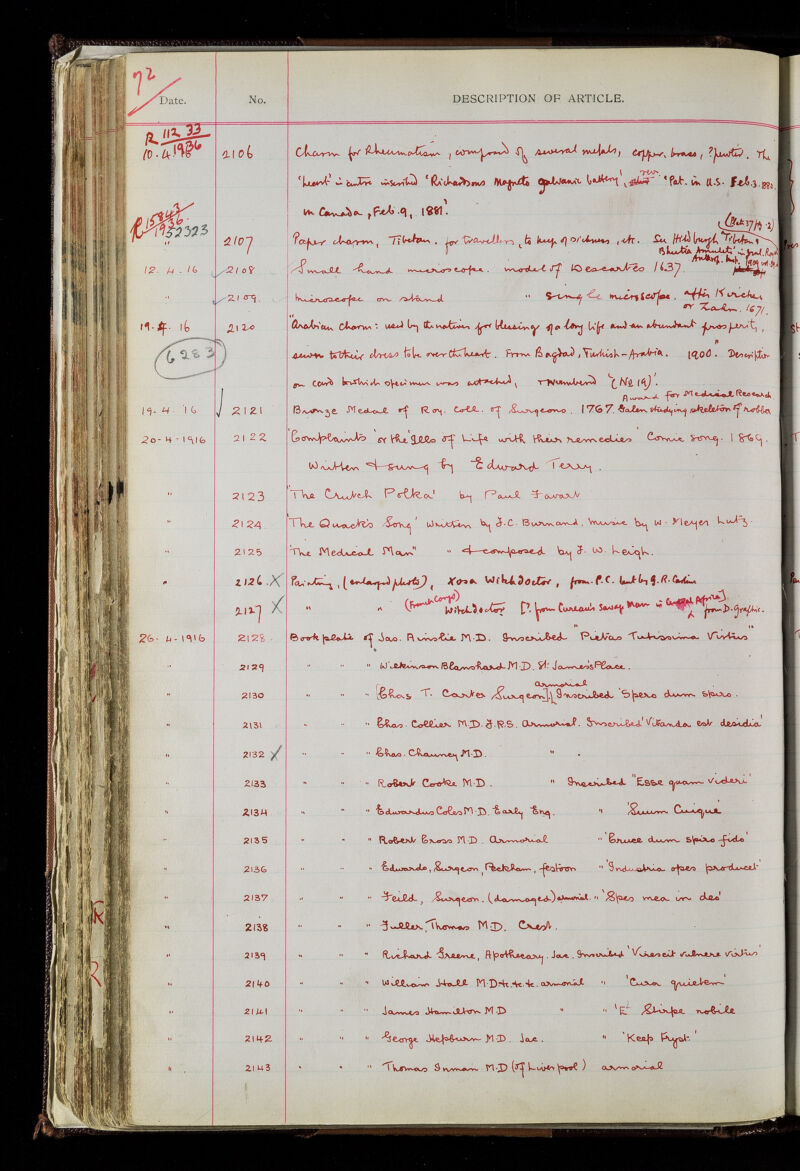 72
Date. No. DESCRIPTION OF ARTICLE.
R 112.33
10.4.1936 2106 Charm for Rheumatism, composed of several metals, copper, brass, ?pewter. The
'heart' in centre inscribed 'Richardsons Magneto galvanic battery', 'Pat. in U.S. Feb. 3. 1880.
in Canada, Feb. 9, 1881'.
R 15843/1936
52323
(Plate 37/19.2)
" 2107 Paper charm, Tibetan. for travellers, to keep off sickness, etc. See Hildburgh, "Tibetan &
Bhutia Amulets" in Jrnl. Roy.
Anthrop. Inst. 1909 vol. 39
12. 4. 16 2108 Small hand microscope. model of Descartes 1637.
" 2109 microscope on stand " Single microscope. after Kircher
or Zahn. 1671.
19. 4. 16 2120 Arabian Charm: used by the natives for the blessing of a long life and an abundant prosperity,
(6283) sewn to their dress to be over the heart. From Bagdad, Turkish-Arabia. 1900". Description
on card to which specimen was attached, & numbered '(No 19)'.
Award for Medical Research
19. 4. 16 2121 Bronze Medal of Roy. Coll. of Surgeons. 1767. Galen studying skeleton of robber
20-4-1916 2122 'Complaints' or the 'Ills of Life with their remedies' Comic song. 1869.
Written & sung by Edward Terry.
" 2123 'The Crutch Polka' by Paul Favart
" 2124 'The Quack's Song' Written by F.C. Burnand. music by W. Meyer Lutz.
" 2125 'The Medical Man" " & composed by F. W. Leigh.
" 2126 X Painting, (enlarged photo), Xosa Witch Doctor, from P.C. lent by
2127 X " " (French Congo) Witch Doctor [? from Cureau's Savage Man in Central Africa] from D. Graphic.
26. 4-1916 2128 Book plate of Jas. Ainslie M.D. Inscribed "Pietas Tutissima Virtus"
" 2129 " " " Wilkinson Blanshard M.D. St. James's Place.
" 2130 " " " [Chas T. Carter Surgeon] armorial Inscribed 'Spero dum spiro.
" 2131 " " " Chas. Collier M.D. F.R.S. Armorial. Inscribed 'Vitanda est desidia'
" 2132 X " " " Chas. Chauncey M.D. " .
" 2133 " " " Robert Cooke M.D. " Inscribed "Esse quam videri"
" 2134 " " " Edwardus Coles M.D. Early Eng. " 'Suum Cuique
" 2135 " " " Robert Cross M.D. Armorial " 'Cruce dum spiro fido'
" 2136 " " " Edwards, Surgeon, Peckham, festoon " 'Industria opes producet'
" 2137 " " " Feild, Surgeon. (damaged) armorial. " 'Spes mea in deo'
" 2138 " " " Fuller, Thomas M.D. Crest.
" 2139 " " " Richard Greene, Apothecary. Jac. Inscribed 'Virescit vulnere virtus'
" 2140 " " " William Hall M.D. &c. &c. &c. armorial " 'Cura quietem'
" 2141 " " " James Hamilton M D " " 'E Stirpe nobile
" 2142 " " " George Hepburn M.D. Jac. " 'Keep Tryst'
" 2143 " " " Thomas Inman M.D (of Liverpool) armorial